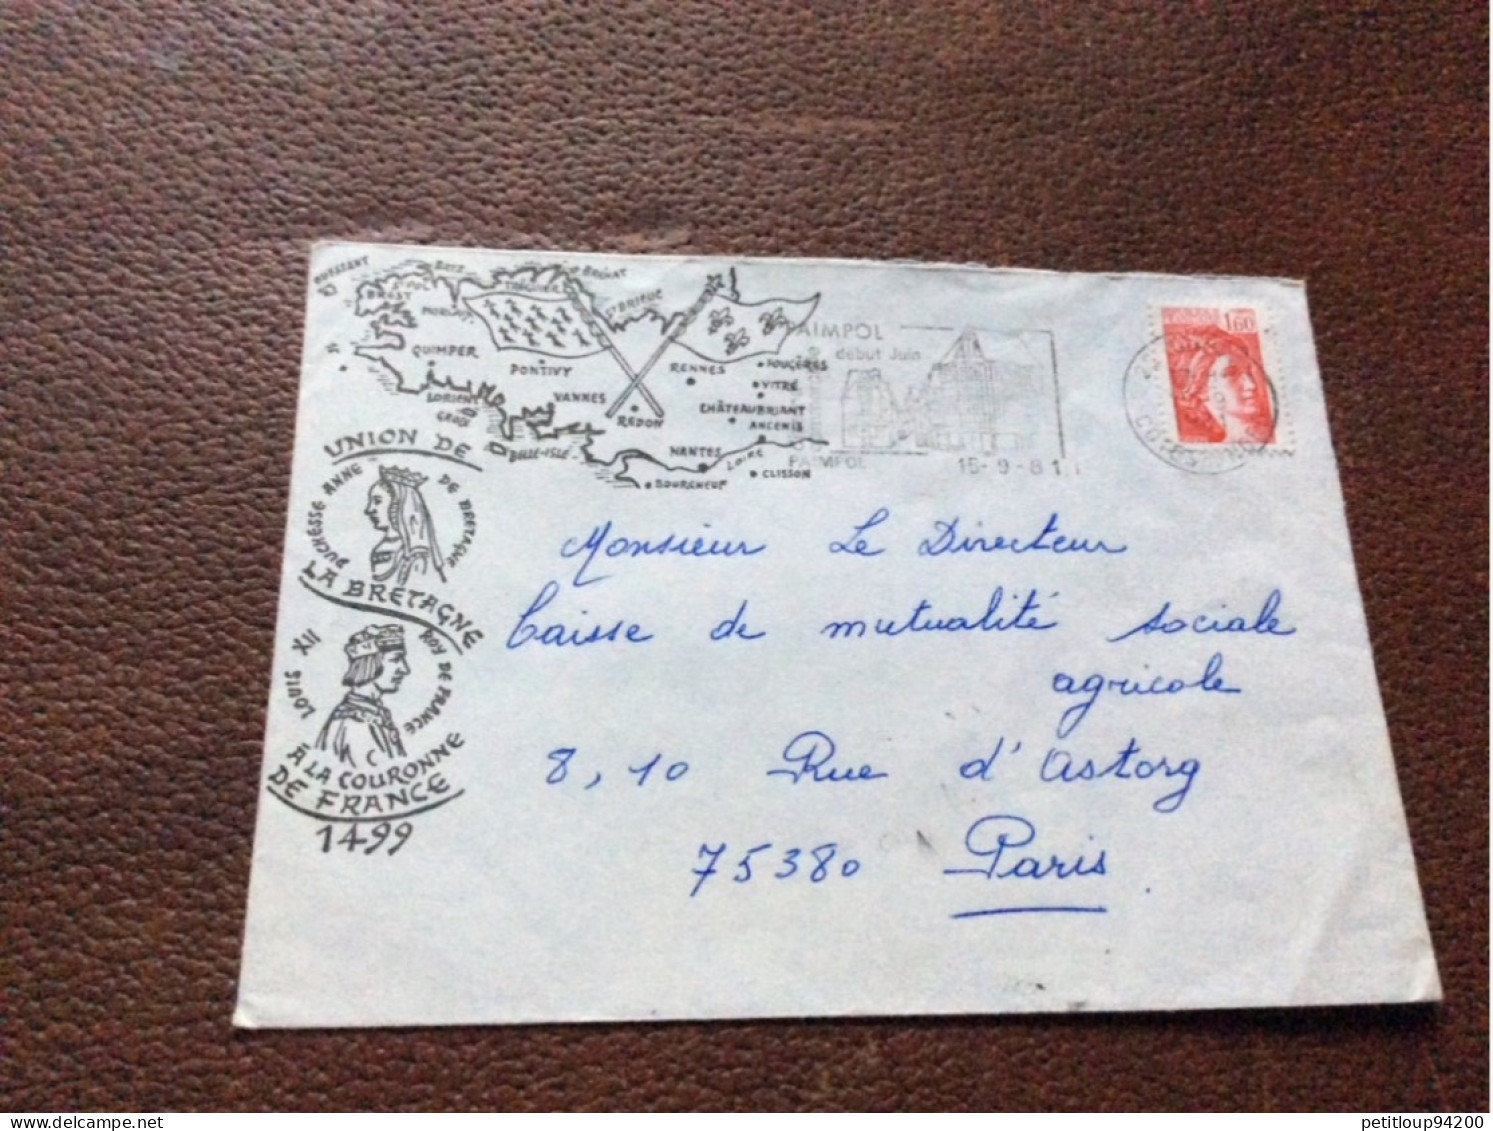 OUESSANT
BREST
MORLAIX
TRÉGUIER
BRÉHAT
ST BRIEUC
QUIMPER
PONTIVY
RENNES
FOUGÈRES
VITRÉ
LORIENT
GROIX
VANNES
REDON
CHÂTEAUBRIANT
ANCENIS
BELLE-ISLE
NANTES
LOIRE
CLISSON
BOURGNEUF
PAIMPOL
début Juin
PAIMPOL
15-9-81
1,60
UNION DE
DUCHESSE ANNE DE BRETAGNE
LA BRETAGNE
LOUIS XII ROY DE FRANCE
À LA COURONNE
DE FRANCE
1499
Monsieur Le Directeur
Caisse de mutualité sociale
agricole
8,10 Rue d'Astorg
75380 Paris
petitloup94200